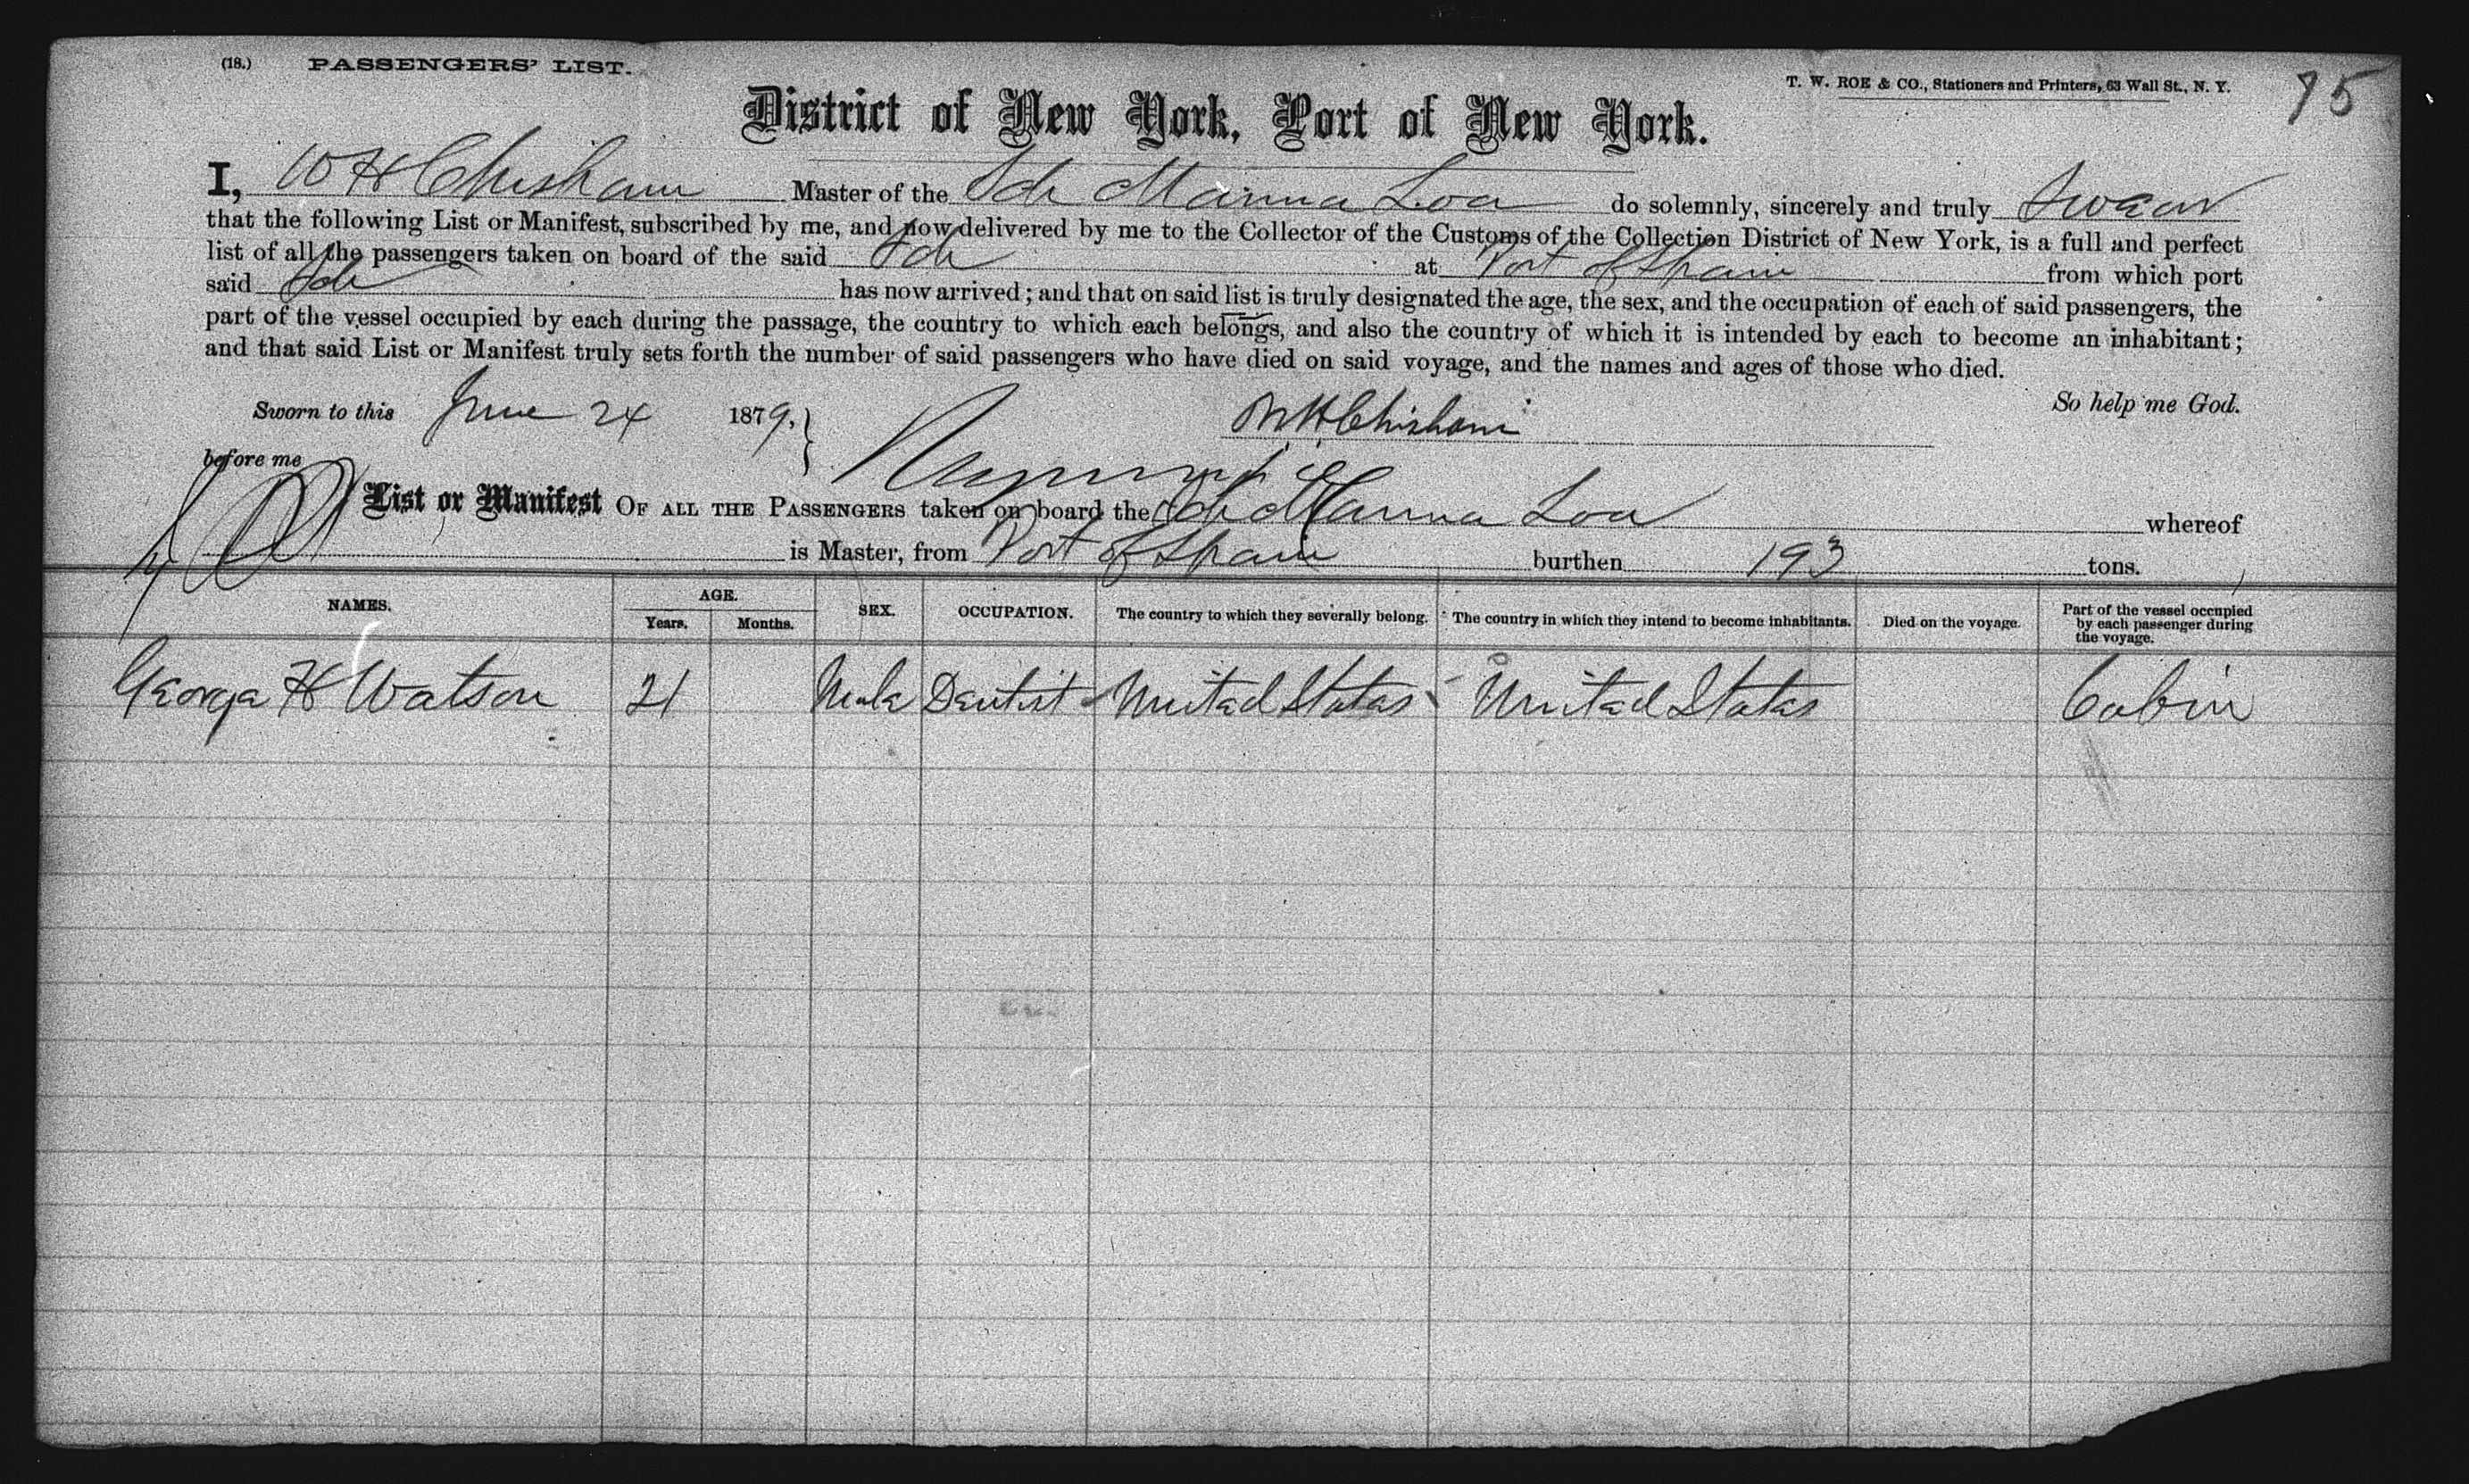 (18.) PASSENGERS' LIST.
T. W. ROE & CO., Stationers and Printers, 63 Wall St., N. Y.
75
District of New York, Port of New York.
I, W H Chisham Master of the Sch Mauna Loa do solemnly, sincerely and truly Swear
that the following List or Manifest, subscribed by me, and now delivered by me to the Collector of the Customs of the Collection District of New York, is a full and perfect
list of all the passengers taken on board of the said Sch at Port of Spain from which port
said Sch has now arrived; and that on said list is truly designated the age, the sex, and the occupation of each of said passengers, the
part of the vessel occupied by each during the passage, the country to which each belongs, and also the country of which it is intended by each to become an inhabitant;
and that said List or Manifest truly sets forth the number of said passengers who have died on said voyage, and the names and ages of those who died.
So help me God.
Sworn to this June 24 1879, W H Chisham
before me
List or Manifest OF ALL THE PASSENGERS taken on board the Sch Mauna Loa whereof
is Master, from Port of Spain burthen 193 tons.
NAMES. AGE. SEX. OCCUPATION. The country to which they severally belong. The country in which they intend to become inhabitants. Died on the voyage. Part of the vessel occupied by each passenger during the voyage.
Years. Months.
George H Watson 21 Male Dentist United States United States Cabin